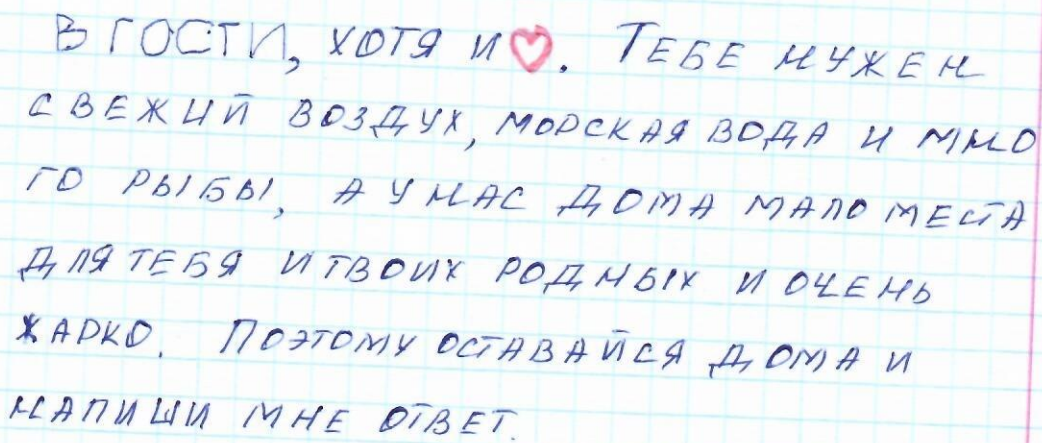 В ГОСТИ, ХОТЯ И ♡. ТЕБЕ НУЖЕН
СВЕЖИЙ ВОЗДУХ, МОРСКАЯ ВОДА И МНО
ГО РЫБЫ, А У НАС ДОМА МАЛО МЕСТА
ДЛЯ ТЕБЯ И ТВОИХ РОДНЫХ И ОЧЕНЬ
ЖАРКО. ПОЭТОМУ ОСТАВАЙСЯ ДОМА И
НАПИШИ МНЕ ОТВЕТ.